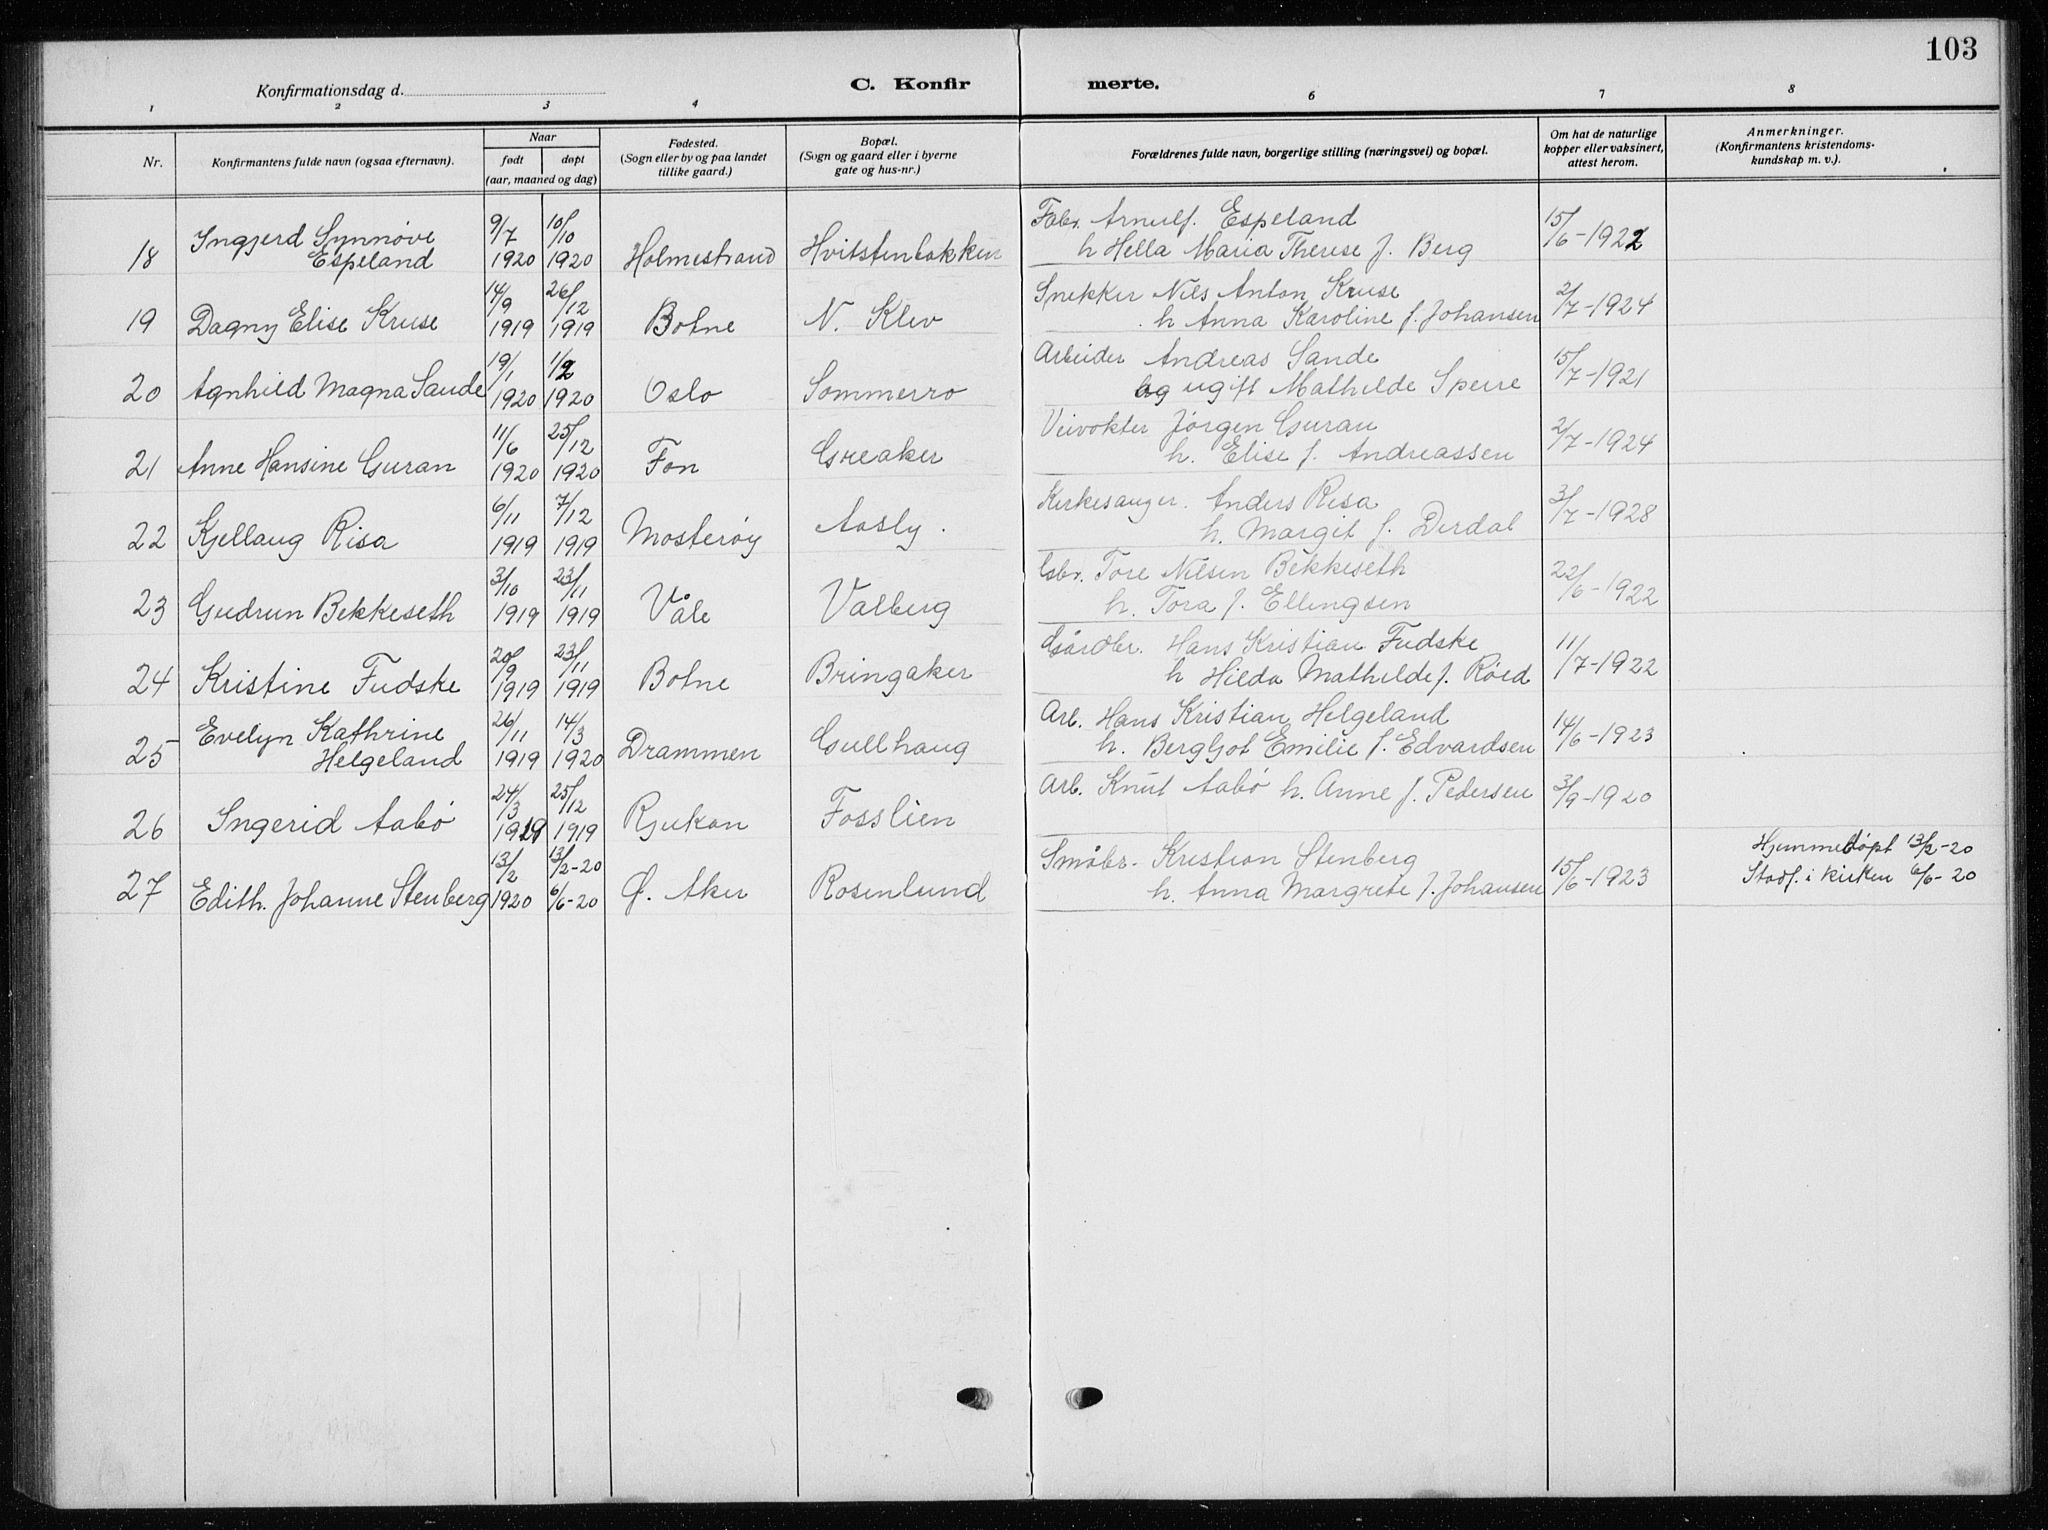 103
Konfirmationsdag d. C. Konfir merte.
1 2 3 4 6 7 8
Nr. Konfirmantens fulde navn (ogsaa efternavn). Naar født døpt (aar, maaned og dag) Fødested. (Sogn eller by og paa landet tillike gaard.) Bopæl. (Sogn og gaard eller i byerne gate og hus-nr.) Forældrenes fulde navn, borgerlige stilling (næringsvei) og bopæl. Om hat de naturlige kopper eller vaksinert, attest herom. Anmerkninger. (Konfirmantens kristendoms-kundskap m. v.).
18 Ingjerd Synnøve Espeland 9/7 1920 10/10 1920 Holmestrand Hvitstenbakken Fabr. Arnulf. Espeland h Hella Maria Therese f. Berg 15/6-1922
19 Dagny Elise Kruse 14/9 1919 26/12 1919 Botne N. Klev Snekker Nils Anton Kruse h Anna Karoline f. Johansen 2/7-1924
20 Agnhild Magna Sande 19/1 1920 1/2 1920 Oslo Sommerro Arbeider Andreas Sande og ugift Mathilde Sperre 15/7-1921
21 Anne Hansine Guran 11/6 1920 25/12 1920 Fon Greaker Veivokter Jørgen Guran h. Elise f. Andreassen 2/7-1924
22 Kjellaug Risa 6/11 1919 7/12 1919 Mosterøy Aasly. Kirkesanger. Anders Risa h. Margit f. Dirdal 3/7-1928
23 Gudrun Bekkeseth 3/10 1919 23/11 1919 Våle Valberg Gbr. Tore Nilsen Bekkeseth h. Tora f. Ellingsen 22/6-1922
24 Kristine Fudske 20/9 1919 23/11 1919 Botne Bringaker Gårdbr. Hans Kristian Fudske h Hilda Mathilde f. Røed 11/7-1922
25 Evelyn Kathrine Helgeland 26/11 1919 14/3 1920 Drammen Gullhaug Arb. Hans Kristian Helgeland h. Bergljot Emilie f. Edvardsen 14/6-1923
26 Ingerid Aabø 24/3 1919 25/12 1919 Rjukan Fosslien Arb. Knut Aabø h. Anne f. Pedersen 3/9-1920
27 Edith. Johanne Stenberg 13/2 1920 13/2-20 6/6-20 Ø. Aker Rosenlund Småbr. Kristian Stenberg h. Anna Margrete f. Johansen 15/6-1923 Hjemmedøpt 13/2-20 Stadf. i kirken 6/6-20